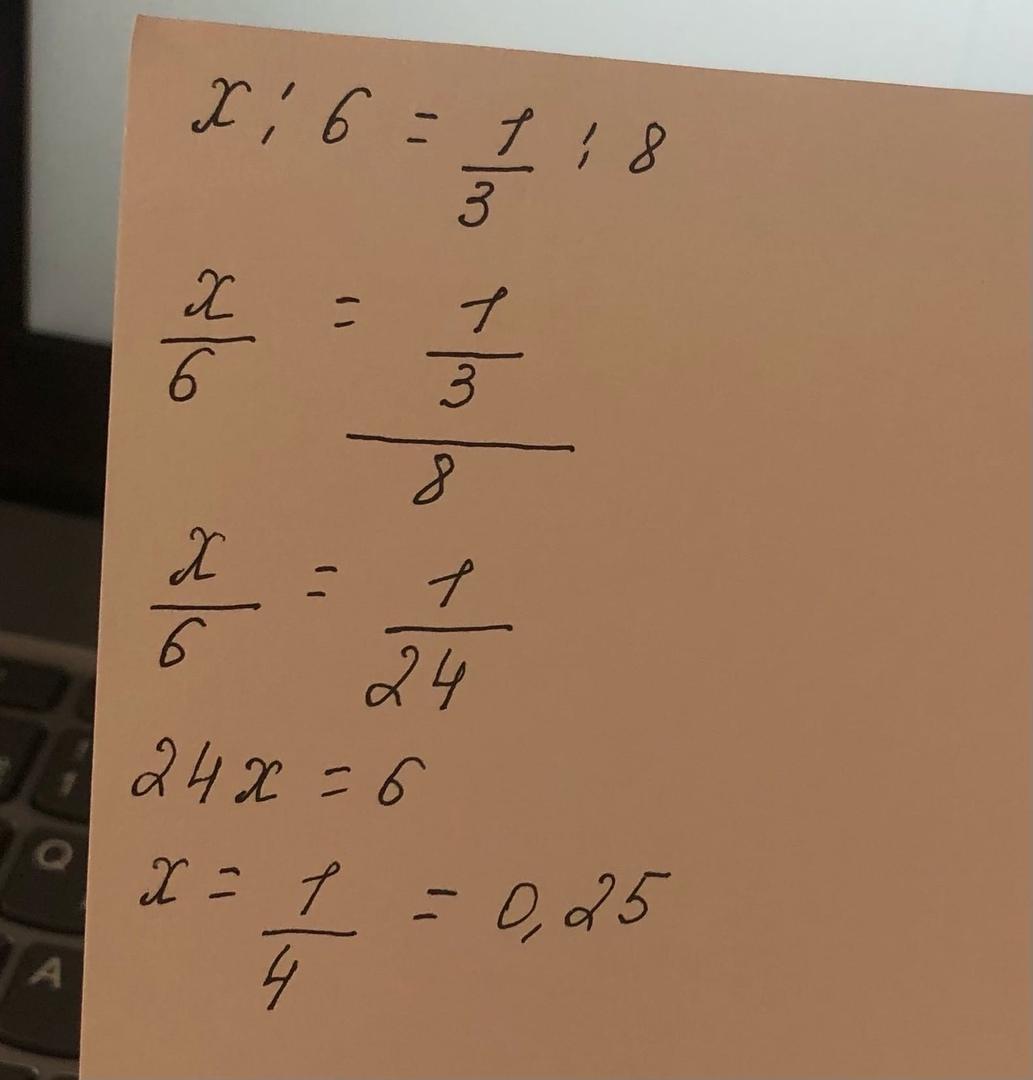 x : 6 = 1/3 : 8
x/6 = (1/3)/8
x/6 = 1/24
24x = 6
x = 1/4 = 0,25
Q
A